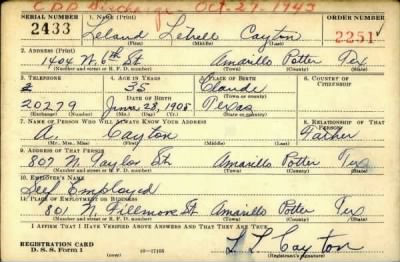 CDD Discharge - Oct-27-1943
SERIAL NUMBER 1. NAME (Print) ORDER NUMBER
2433 Leland Letrell Cayton 2251
(First) (Middle) (Last)
2. ADDRESS (Print)
1404 N. 6th St Amarillo Potter Tex
(Number and street or R. F. D. number) (Town) (County) (State)
3. TELEPHONE 4. AGE IN YEARS 5. PLACE OF BIRTH 6. COUNTRY OF CITIZENSHIP
35 Claude
DATE OF BIRTH (Town or county)
20279 June 28, 1905 Texas
(Exchange) (Number) (Mo.) (Day) (Yr.) (State or country)
7. NAME OF PERSON WHO WILL ALWAYS KNOW YOUR ADDRESS 8. RELATIONSHIP OF THAT PERSON
A. Cayton Father
(Mr., Mrs., Miss) (First) (Middle) (Last)
9. ADDRESS OF THAT PERSON
807 N. Taylor St. Amarillo Potter Tex
(Number and street or R. F. D. number) (Town) (County) (State)
10. EMPLOYER'S NAME
Self Employed
11. PLACE OF EMPLOYMENT OR BUSINESS
801 N. Fillmore St Amarillo Potter Tex
(Number and street or R. F. D. number) (Town) (County) (State)
I AFFIRM THAT I HAVE VERIFIED ABOVE ANSWERS AND THAT THEY ARE TRUE.
REGISTRATION CARD
D. S. S. Form 1 L L Cayton
(Registrant's signature)